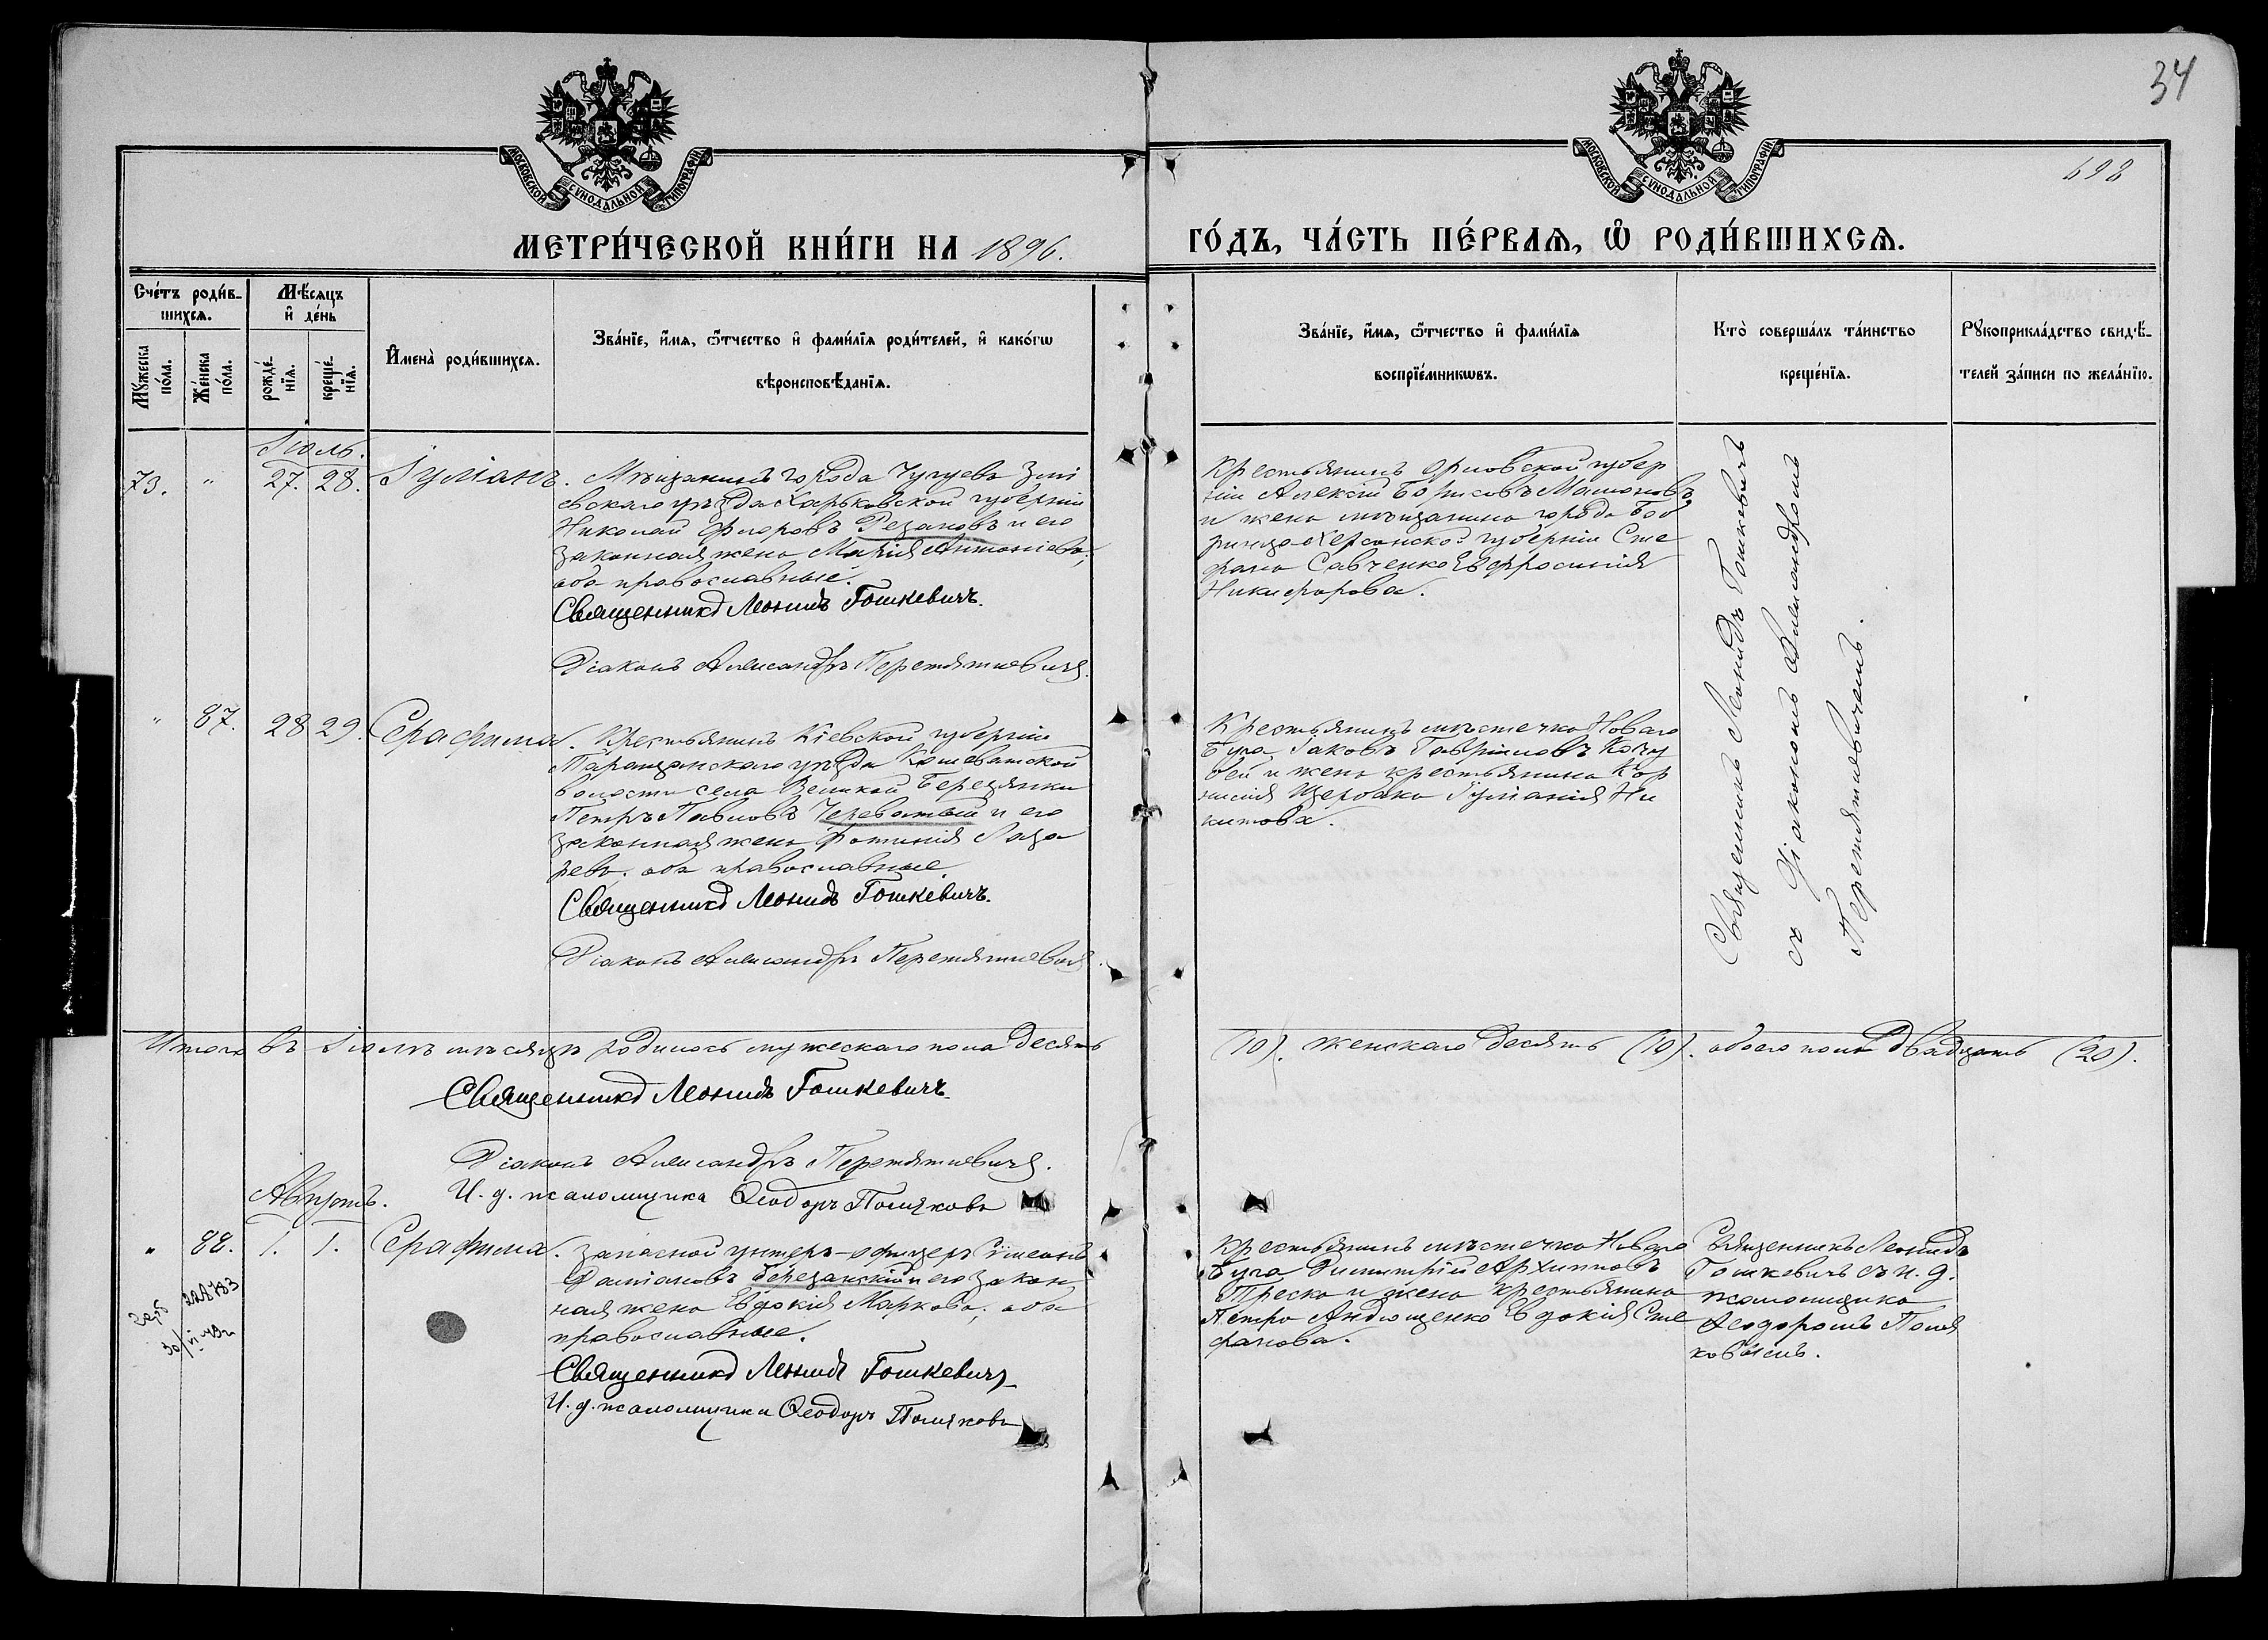 34
698
МОСКОВСКОЙ СѴНОДАЛЬНОЙ ТИПОГРАФІИ
МОСКОВСКОЙ СѴНОДАЛЬНОЙ ТИПОГРАФІИ
МЕТРИ́ЧЕСКОЙ КНИ́ГИ НА 1896.
ГО́ДЪ, ЧА́СТЬ ПЕ́РВАѦ, Ѽ РОДИ́ВШИХСѦ.
Сче́тъ роди́в-
шихсѧ.
Мѣ́сѧцъ
и҆ де́нь
Мꙋжеска по́ла.
Же́нска по́ла.
рожде́нїѧ.
креще́нїѧ.
И҆мена̀ роди́вшихсѧ.
Зва́нїе, и҆́мѧ, ѻ҆́тчество и҆ фами́лїѧ роди́телей, и҆ како́гѡ
вѣроисповѣ́данїѧ.
Зва́нїе, и҆́мѧ, ѻ҆́тчество и҆ фами́лїѧ
воспрїе́мникѡвъ.
Кто̀ соверша́лъ та́инство
креще́нїѧ.
Рꙋкоприкла́дство свидѣ́-
телей за́писи по жела́нїю.
Іюль.
73. " 27. 28. Іуліанъ.
Мѣщанинъ города Чугуева Змі
евскаго уѣзда Харьковской губерніи
Николай Флоровъ Резановъ и его
законная жена Марія Антоніева,
оба православные.
Священникъ Леонидъ Гошкевичъ.
Діаконъ Александръ Перетяткевичъ.
Крестьянинъ Орловской губер
ніи Алексій Борисовъ Мамоновъ
и жена мѣщанина города Боб
ринца Херсонской губерніи Сте
фана Савченко Евфросинія
Никифорова.
Священникъ Леонидъ Гошкевичъ
съ Діакономъ Александромъ
Перетяткевичемъ.
" 87. 28 29. Серафима.
Крестьянинъ Кіевской губерніи
Таращанскаго уѣзда Кошеватской
волости села Великой Березянки
Петръ Павловъ Череватый и его
законная жена Фотинія Лаза
рева, оба православные.
Священникъ Леонидъ Гошкевичъ.
Діаконъ Александръ Перетяткевичъ.
Крестьянинъ мѣстечка Новаго
Буга Іаковъ Гавріиловъ Кочу
бей и жена крестьянина Кор
нилія Щербака Іуліанія Ни
китова.
Итого въ Іюлѣ мѣсяцѣ родилось мужескаго пола десять
(10). женскаго десять (10). обоего пола двадцать (20).
Священникъ Леонидъ Гошкевичъ.
Діаконъ Александръ Перетяткевичъ.
И. д. псаломщика Ѳеодоръ Поляковъ
Августъ.
" 88. 1. 1. Серафима.
228783
30/VI 49г
Запасной унтеръ-офицеръ Симеонъ
Даміановъ Березанскій и его закон
ная жена Евдокія Маркова, оба
православные.
Священникъ Леонидъ Гошкевичъ
И. д. псаломщика Ѳеодоръ Поляковъ
Крестьянинъ мѣстечка Новаго
Буга Димитрій Архиповъ
Треска и жена крестьянина
Петра Андющенко Евдокія Сте
фанова.
Священникъ Леонидъ
Гошкевичъ съ и. д.
псаломщика
Ѳеодоромъ Поля
ковымъ.